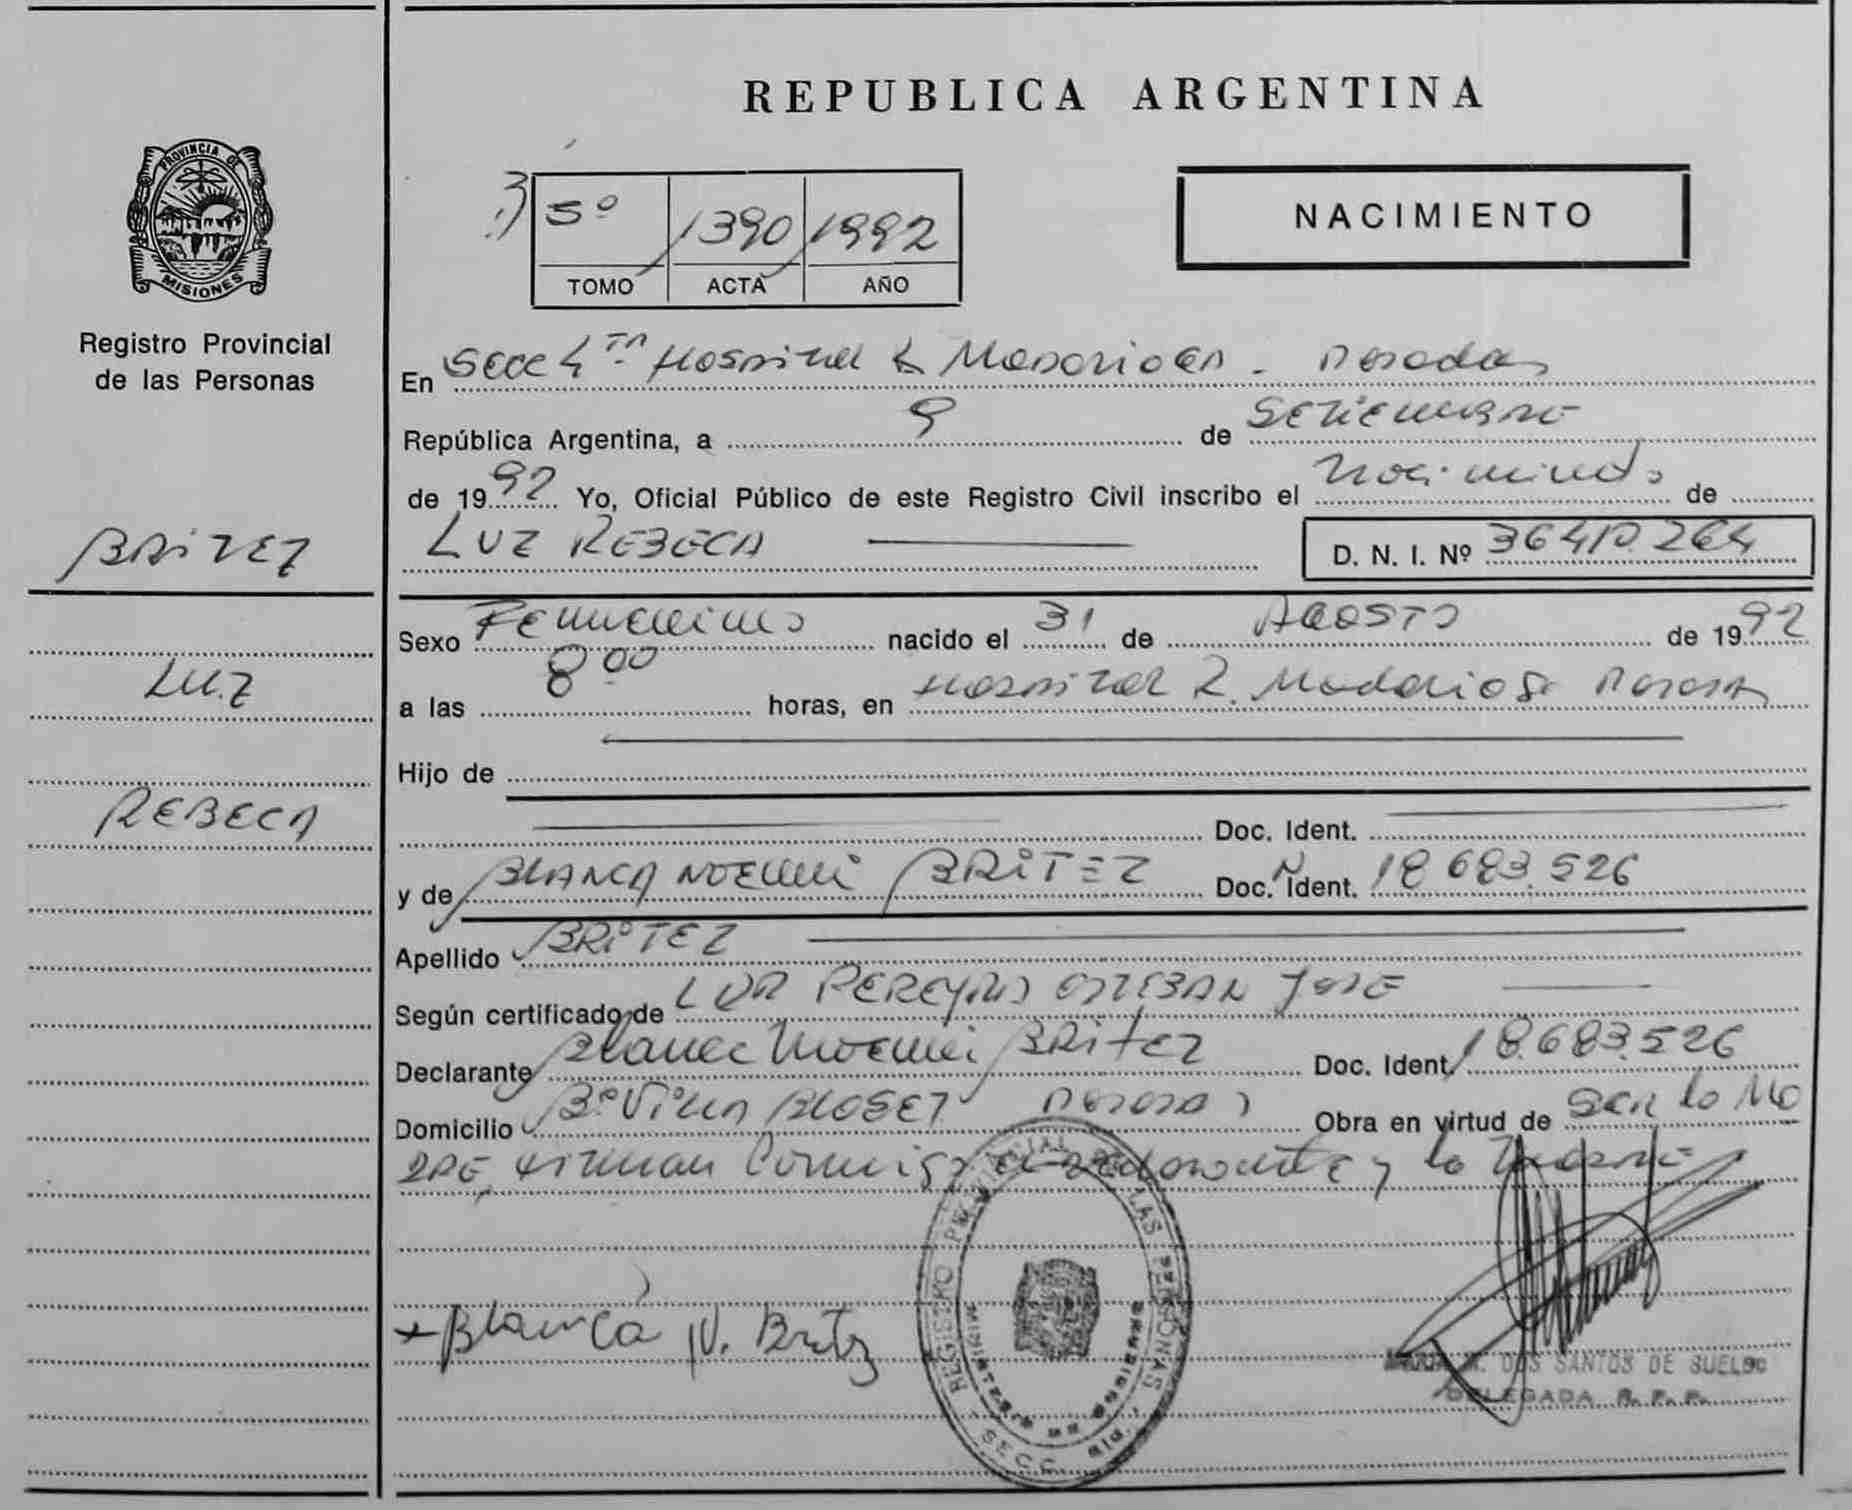 REPUBLICA ARGENTINA
PROVINCIA DE
MISIONES
Registro Provincial
de las Personas
BRITEZ
LUZ
REBECA
5º 1390 1992
TOMO ACTA AÑO
NACIMIENTO
En Secc 4ta Hospital R Madariaga - Posadas
República Argentina, a 9 de SETIEMBRE
de 1992 Yo, Oficial Público de este Registro Civil inscribo el Nacimiento de
LUZ REBECA D. N. I. Nº 36.410.264
Sexo Femenino nacido el 31 de AGOSTO de 1992
a las 8 00 horas, en Hospital R. Madariaga Posadas
Hijo de
Doc. Ident.
y de BLANCA NOEMI BRITEZ Doc. Ident. N 18.683.526
Apellido BRITEZ
Según certificado de PEREYRA ESTEBAN JOSE
Declarante Blanca Noemi BRITEZ Doc. Ident. 18.683.526
Domicilio Bº Villa BLOSET Posadas Obra en virtud de ser la Ma
DRE, firman Conmigo la declarante y la
+ Blanca N. Britz
REGISTRO PROVINCIAL DE LAS PERSONAS
MINISTERIO DE GOBIERNO
SECC.
DOS SANTOS DE SUELDO
DELEGADA R. P. P.